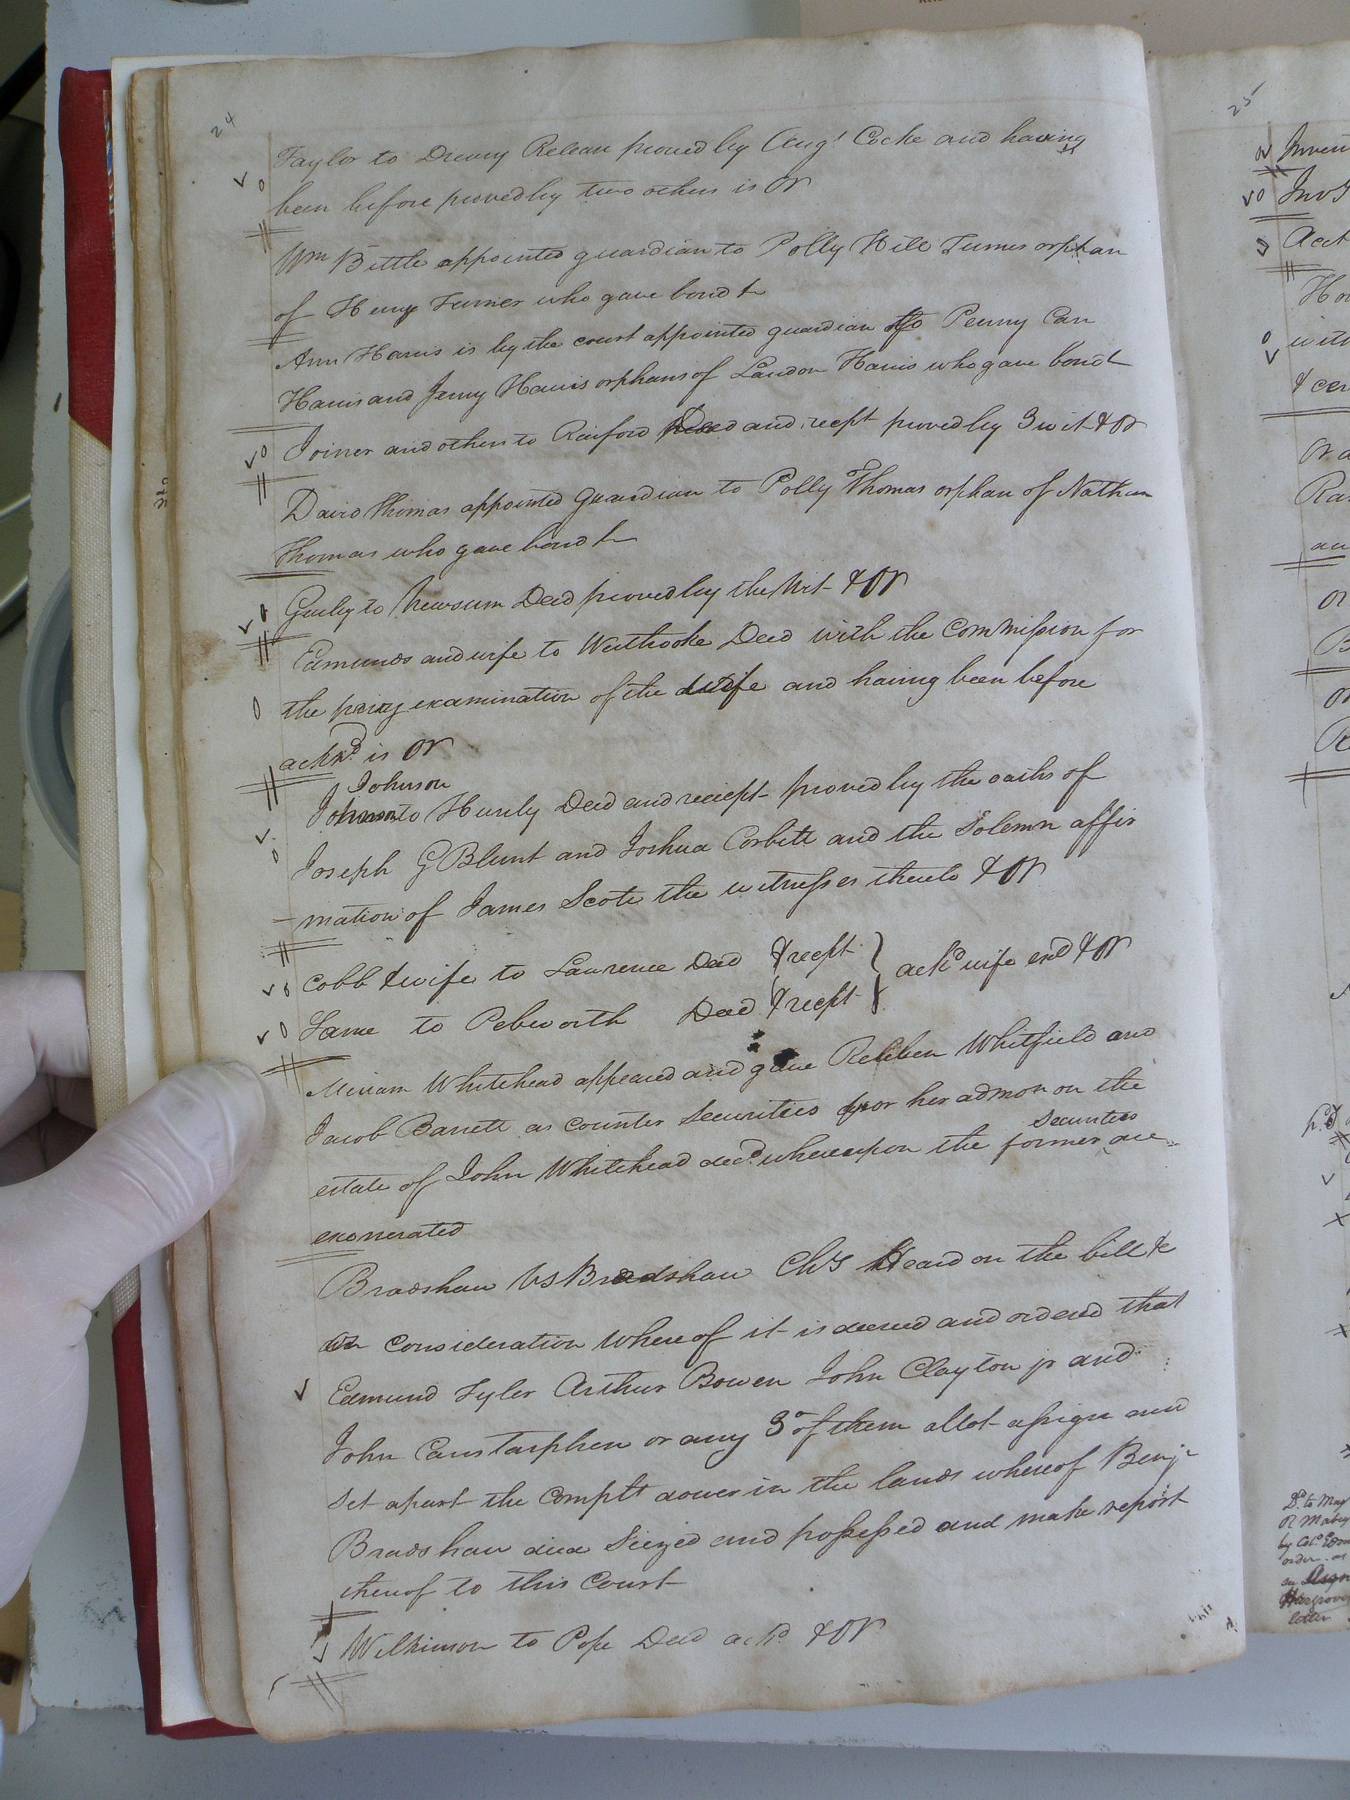 24
Taylor to Drewry Release proved by Augt Cocke and having
been before proved by two others is OR
Wm Bittle appointed guardian to Polly Hill Turner orphan
of Henry Turner who gave bond &
Ann Harris is by the court appointed guardian to Penny Can
Harris and Jenny Harris orphans of Landon Harris who gave bond &
Joiner and others to Raiford Deed and recpt proved by 3 wit & OR
David Thomas appointed Guardian to Polly Thomas orphan of Nathan
Thomas who gave bond &
Gurley to Newsum Deed proved by the Wit & OR
Edmunds and wife to Westbrooke Deed with the Commission for
the privy examination of the wife and having been before
ackd is OR
Johnson
Johnson to Hunly Deed and reciept proved by the oaths of
Joseph G Blunt and Joshua Corbitt and the Solemn affir
-mation of James Scott the witnesses thereto & OR
Cobb & wife to Lawrence Deed & recpt } ackd wife exd & OR
Same to Pebworth Deed & recpt
Miriam Whitehead appeared and gave Reuben Whitfield and
Jacob Barrett as counter Securities for her admon on the
securities
estate of John Whitehead decd whereupon the former are
exonerated
Bradshaw vs Bradshaw Chy Heard on the bill &
on Consideration whereof it is decreed and ordered that
Edmund Tyler Arthur Bowen John Clayton jr and
John Canstarphen or any 3 of them allot assign and
set apart the Complt dower in the lands whereof Benjn
Bradshaw died Seized and possessed and make report
thereof to this Court
Wilkinson to Pope Deed ackd & OR
25
Inven
Acct
& cer
Do to May
order as
letter